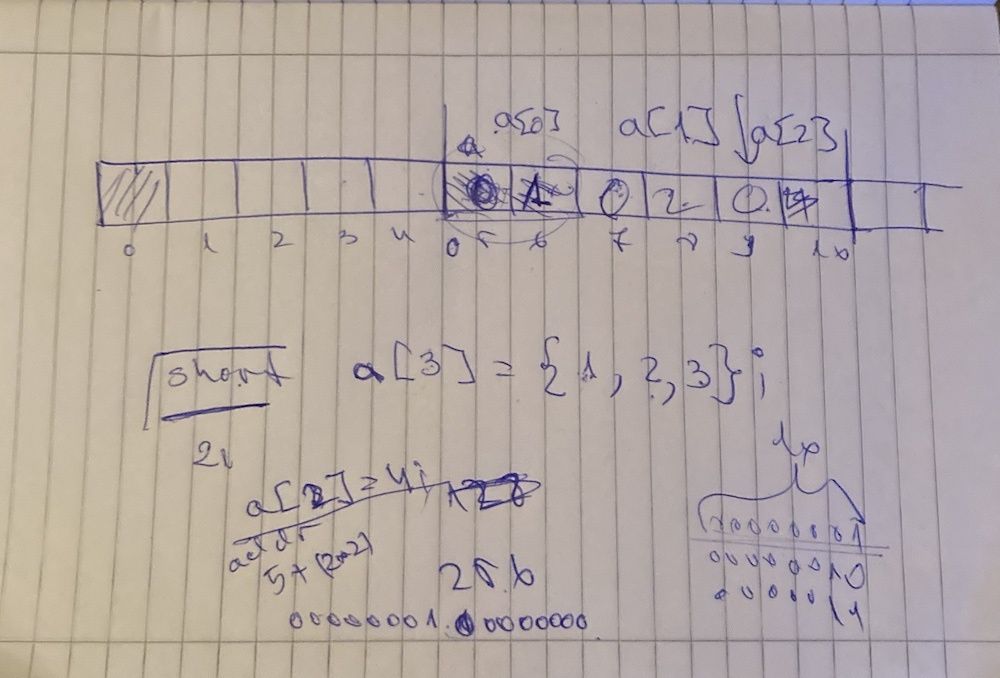 a[0] a[1] a[2]
0 1 0 2 0
0 1 2 3 4 0 5 6 7 8 9 10
short a[3] = {1, 2, 3};
a[2] = 4;
5 + (2*2)
256
00000001.00000000
00000001
00000010
11